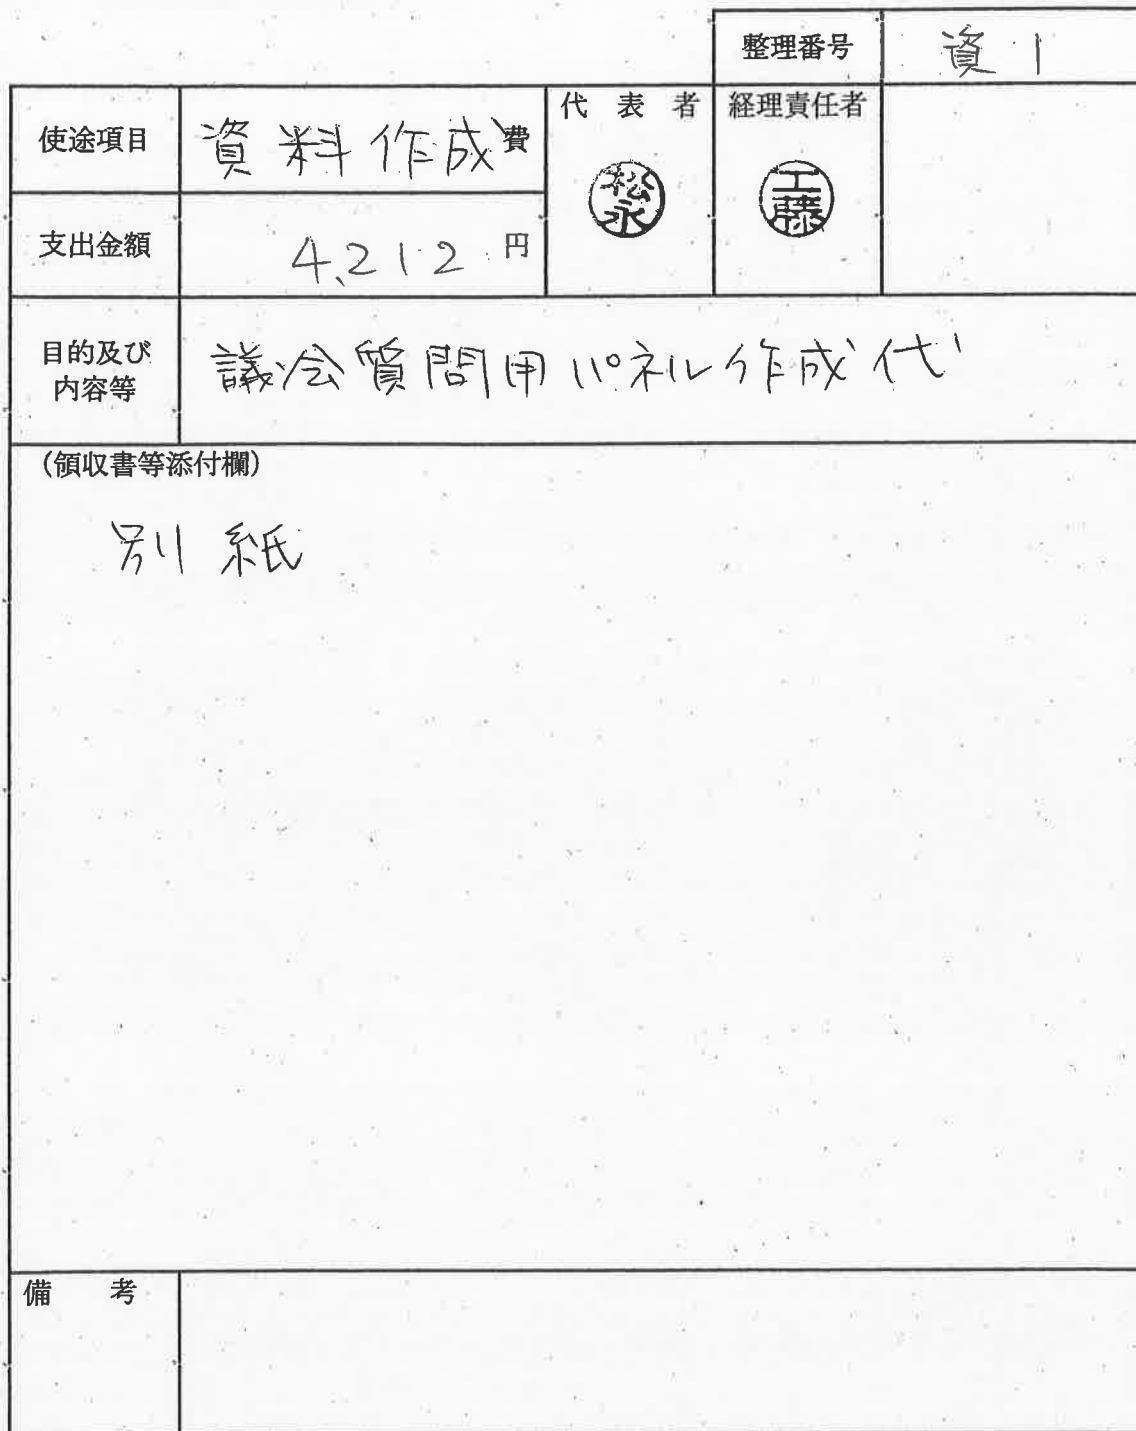 整理番号 資1
使途項目 資料作成費
代表者 経理責任者
松永 工藤
支出金額 4,212円
目的及び
内容等
議会質問用パネル作成代
(領収書等添付欄)
別紙
備考